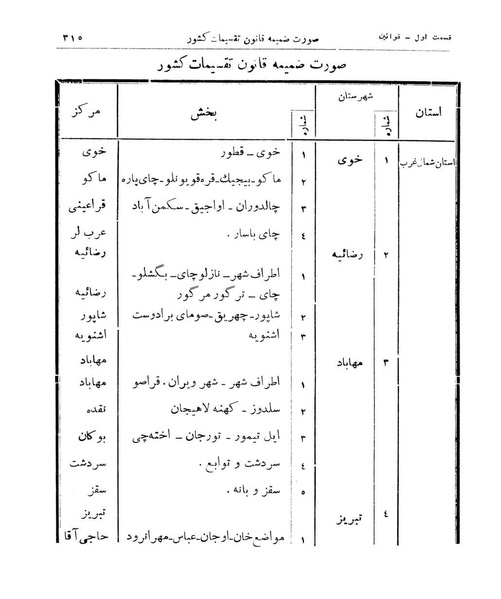 قسمت اول - قوانین صورت ضمیمه قانون تقسیمات کشور ۳۱۵
صورت ضمیمه قانون تقسیمات کشور
استان شهرستان شماره بخش شماره مرکز
استان شمال غرب ۱ خوی ۱ خوی - قطور خوی
۲ ماکو - بیجیك - قره قویونلو - چای پاره ماکو
۳ چالدوران - اواجیق - سکمن آباد قراعینی
٤ چای باسار . عرب لر
۲ رضائیه رضائیه
۱ اطراف شهر - نازلوچای - بگشلو -
چای - ترگور مرگور رضائیه
۲ شاپور - چهریق - صومای برادوست شاپور
۳ اشنویه اشنویه
۳ مهاباد مهاباد
۱ اطراف شهر - شهر ویران . قراصو مهاباد
۲ سلدوز - کهنه لاهیجان نقده
۳ ایل تیمور - تورجان - اخته چی بوکان
٤ سردشت و توابع . سردشت
۵ سقز و بانه . سقز
٤ تبریز تبریز
۱ مواضع خان - اوجان - عباس - مهرانرود حاجی آقا